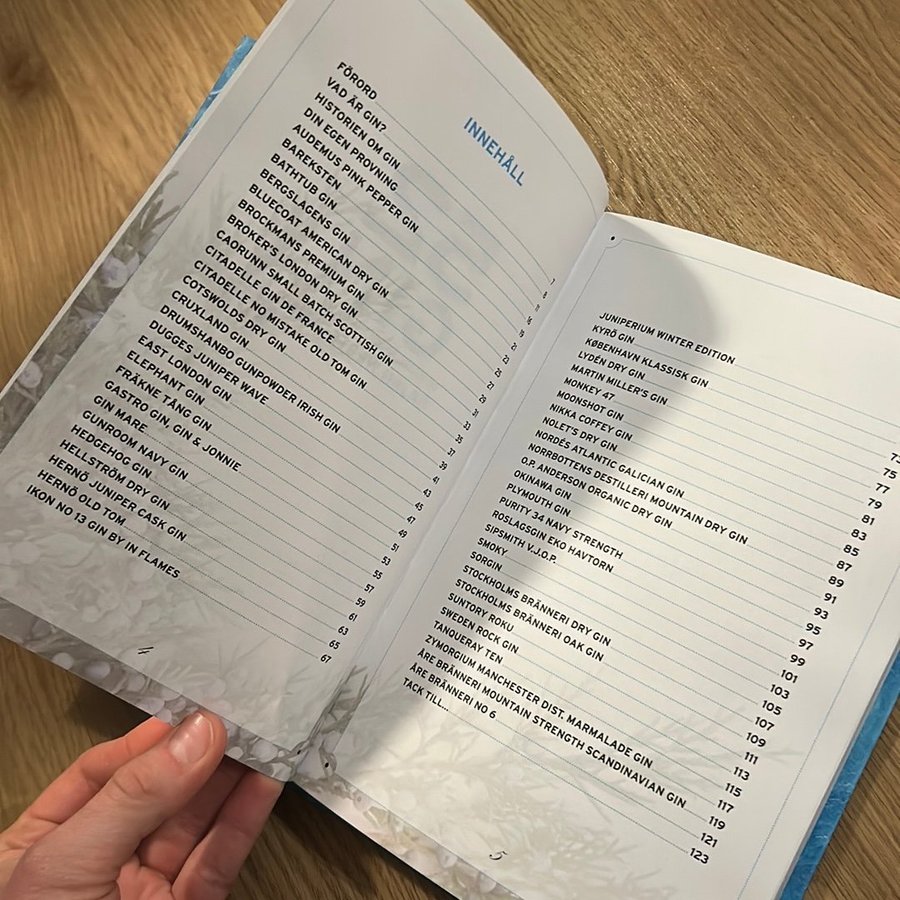 INNEHÅLL
FÖRORD 7
VAD ÄR GIN? 8
HISTORIEN OM GIN 11
DIN EGEN PROVNING 16
AUDEMUS PINK PEPPER GIN 19
BAREKSTEN 21
BATHTUB GIN 23
BERGSLAGENS GIN 25
BLUECOAT AMERICAN DRY GIN 27
BROCKMANS PREMIUM GIN 29
BROKER'S LONDON DRY GIN 31
CAORUNN SMALL BATCH SCOTTISH GIN 33
CITADELLE GIN DE FRANCE 35
CITADELLE NO MISTAKE OLD TOM GIN 37
COTSWOLDS DRY GIN 39
CRUXLAND GIN 41
DRUMSHANBO GUNPOWDER IRISH GIN 43
DUGGES JUNIPER WAVE 45
EAST LONDON GIN 47
ELEPHANT GIN 49
FRÄKNE TÅNG GIN 51
GASTRO GIN, GIN & JONNIE 53
GIN MARE 55
GUNROOM NAVY GIN 57
HEDGEHOG GIN 59
HELLSTRÖM DRY GIN 61
HERNÖ JUNIPER CASK GIN 63
HERNÖ OLD TOM 65
IKON NO 13 GIN BY IN FLAMES 67
4
JUNIPERIUM WINTER EDITION
KYRÖ GIN
KØBENHAVN KLASSISK GIN 73
LYDÉN DRY GIN 75
MARTIN MILLER'S GIN 77
MONKEY 47 79
MOONSHOT GIN 81
NIKKA COFFEY GIN 83
NOLET'S DRY GIN 85
NORDÉS ATLANTIC GALICIAN GIN 87
NORRBOTTENS DESTILLERI MOUNTAIN DRY GIN 89
O.P. ANDERSON ORGANIC DRY GIN 91
OKINAWA GIN 93
PLYMOUTH GIN 95
PURITY 34 NAVY STRENGTH 97
ROSLAGSGIN EKO HAVTORN 99
SIPSMITH V.J.O.P. 101
SMOKY 103
SORGIN 105
STOCKHOLMS BRÄNNERI DRY GIN 107
STOCKHOLMS BRÄNNERI OAK GIN 109
SUNTORY ROKU 111
SWEDEN ROCK GIN 113
TANQUERAY TEN 115
ZYMORGIUM MANCHESTER DIST. MARMALADE GIN 117
ÅRE BRÄNNERI MOUNTAIN STRENGTH SCANDINAVIAN GIN 119
ÅRE BRÄNNERI NO 6 121
TACK TILL... 123
5